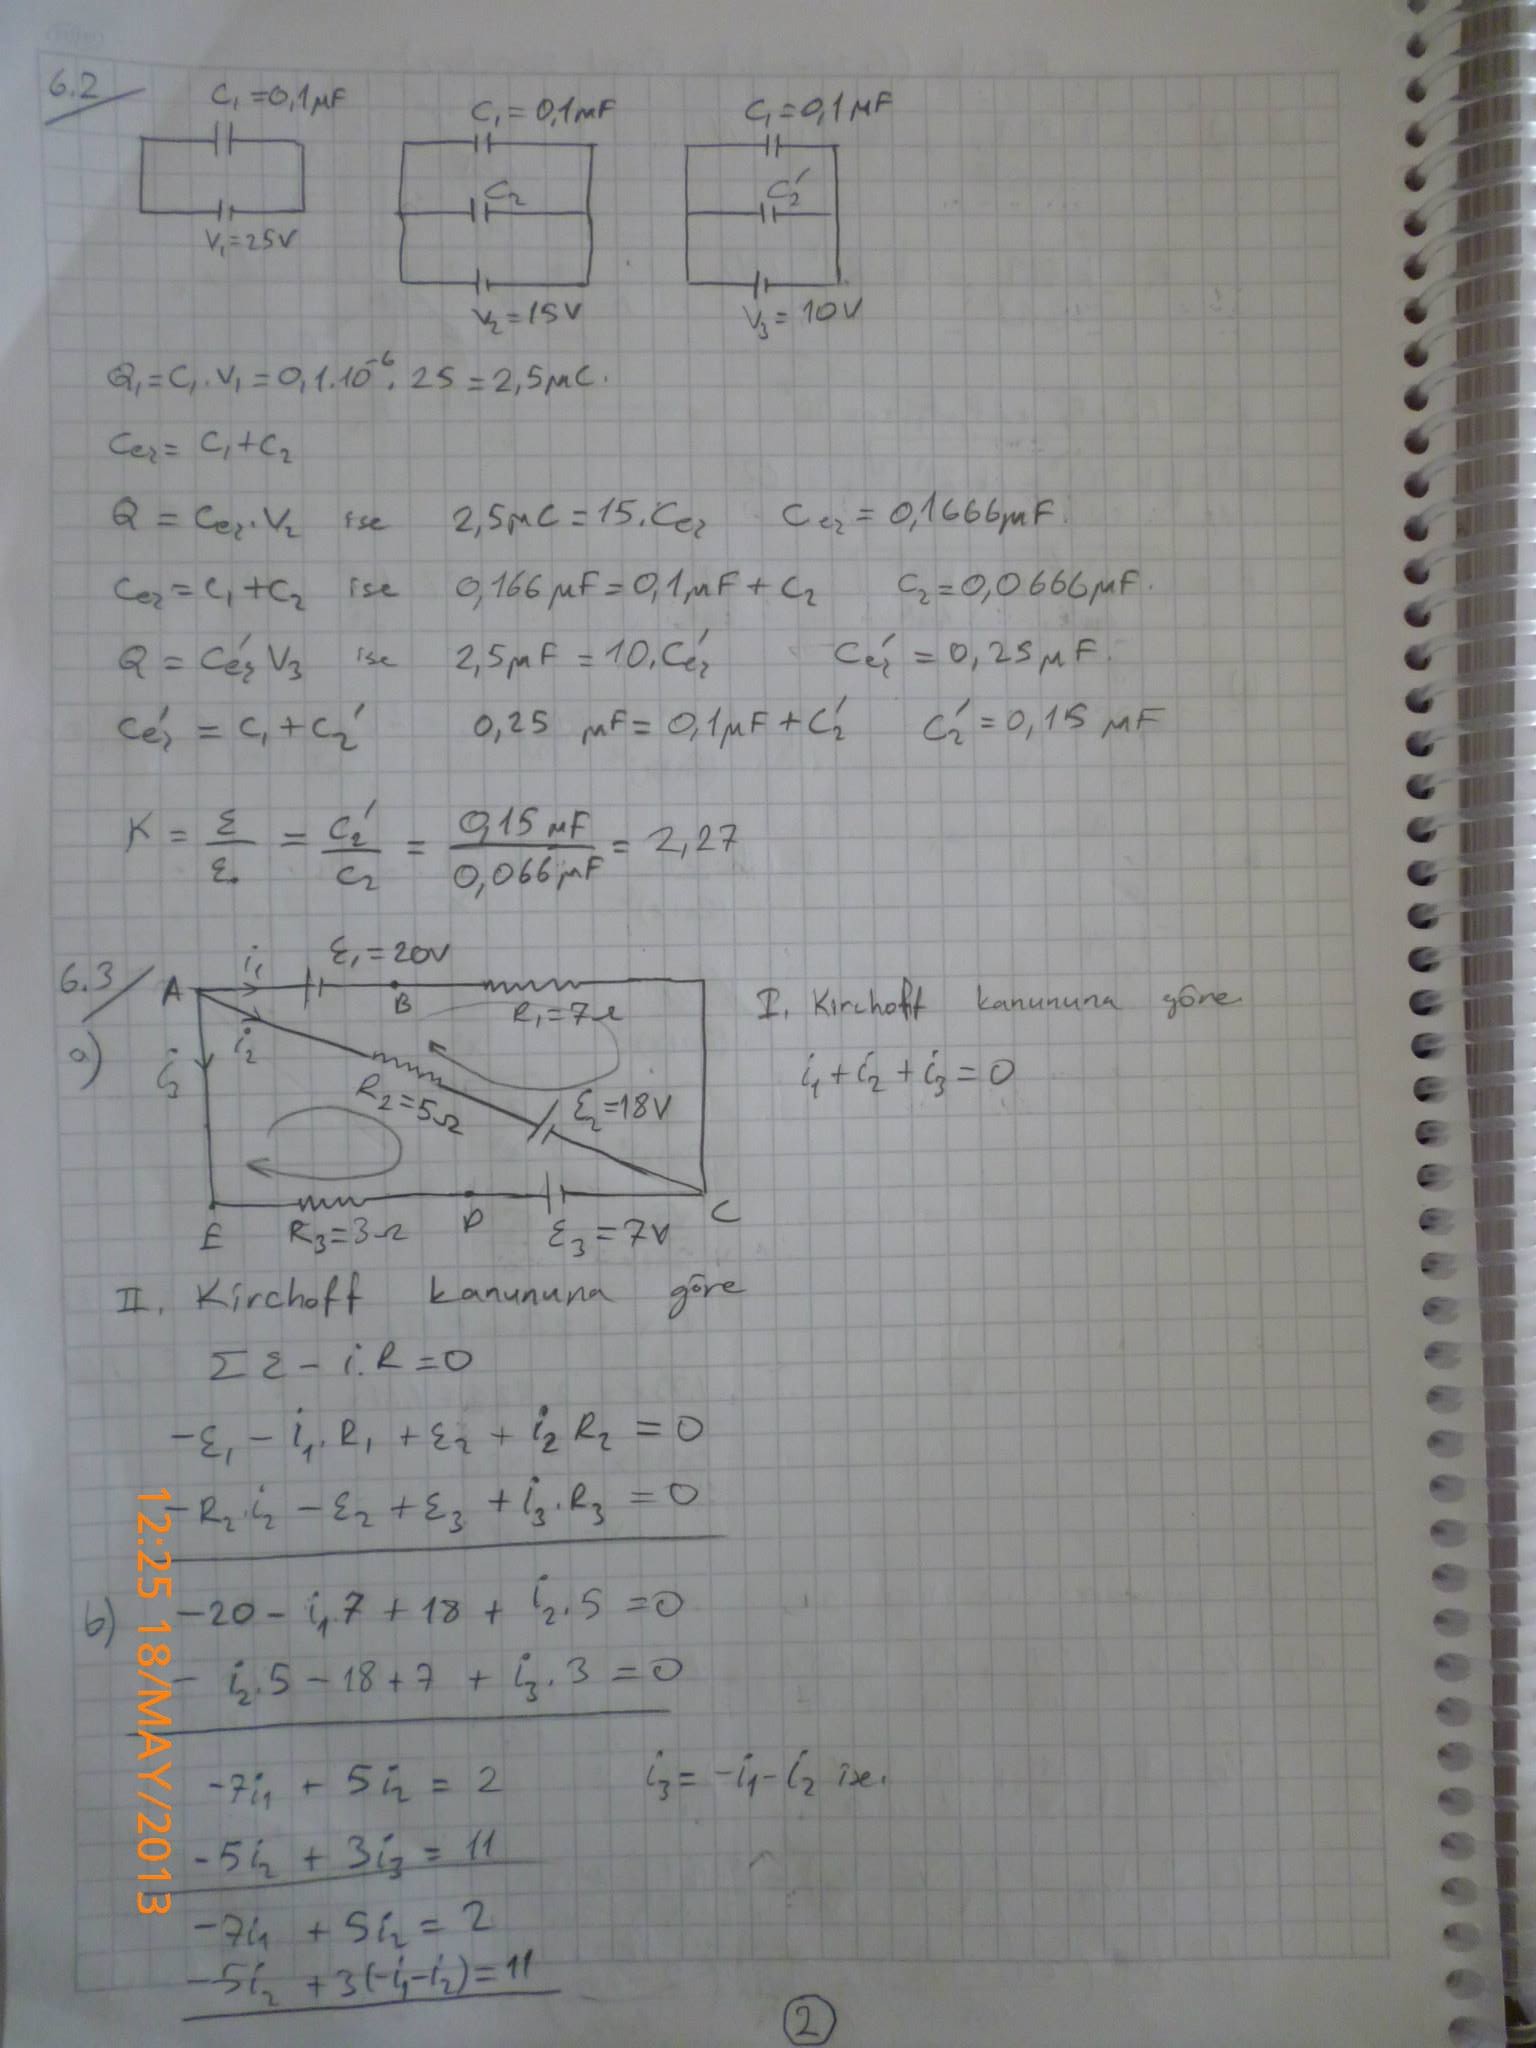 6.2
C₁=0,1μF
V₁=25V
C₁=0,1μF
C₂
V₂=15V
C₁=0,1μF
C₂'
V₃=10V
Q₁=C₁.V₁=0,1.10⁻⁶.25=2,5μC.
Ceş=C₁+C₂
Q = Ceş.V₂ ise 2,5μC=15.Ceş Ceş=0,1666μF.
Ceş=C₁+C₂ ise 0,166μF=0,1μF+C₂ C₂=0,0666μF.
Q = Ceş' V₃ ise 2,5μF=10.Ceş' Ceş'=0,25μF.
Ceş' = C₁+C₂' 0,25 μF=0,1μF+C₂' C₂'=0,15 μF
K = ε/ε₀ = C₂'/C₂ = 0,15μF/0,066μF = 2,27
6.3
a)
A
i₁
ε₁=20V
B
R₁=7Ω
i₂
i₃
R₂=5Ω
ε₂=18V
E
R₃=3Ω
D
ε₃=7V
C
I. Kirchoff kanununa göre
i₁+i₂+i₃=0
II. Kirchoff kanununa göre
Σε-i.R=0
-ε₁-i₁.R₁+ε₂+i₂R₂=0
-R₂.i₂-ε₂+ε₃+i₃.R₃=0
b) -20-i₁7+18+i₂.5=0
- i₂.5-18+7+i₃.3=0
-7i₁+5i₂=2 i₃=-i₁-i₂ ise.
-5i₂+3i₃=11
-7i₁+5i₂=2
-5i₂+3(-i₁-i₂)=11
2
12:25 18/MAY/2013